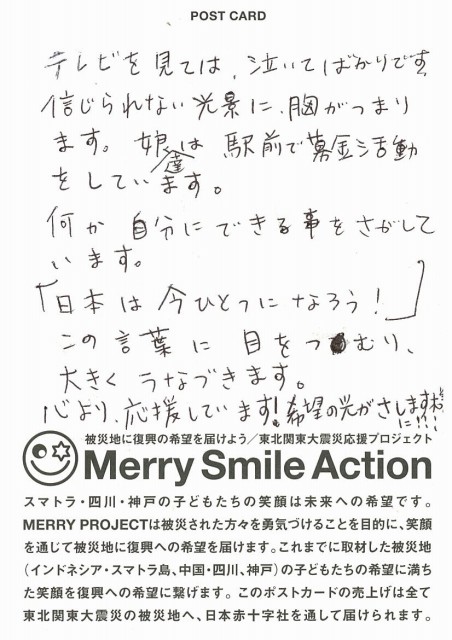 POST CARD
テレビを見ては、泣いてばかりです。
信じられない光景に、胸がつまり
ます。娘達は駅前で募金活動
をしています。
何か自分にできる事をさがして
います。
「日本は今ひとつになろう！」
この言葉に目をつむり、
大きくうなづきます。
心より、応援しています！希望の光がさしますように!!!
被災地に復興の希望を届けよう／東北関東大震災応援プロジェクト
Merry Smile Action
スマトラ・四川・神戸の子どもたちの笑顔は未来への希望です。
MERRY PROJECTは被災された方々を勇気づけることを目的に、笑顔
を通じて被災地に復興への希望を届けます。これまでに取材した被災地
（インドネシア・スマトラ島、中国・四川、神戸）の子どもたちの希望に満ち
た笑顔を復興への希望に繋げます。このポストカードの売上げは全て
東北関東大震災の被災地へ、日本赤十字社を通して届けられます。